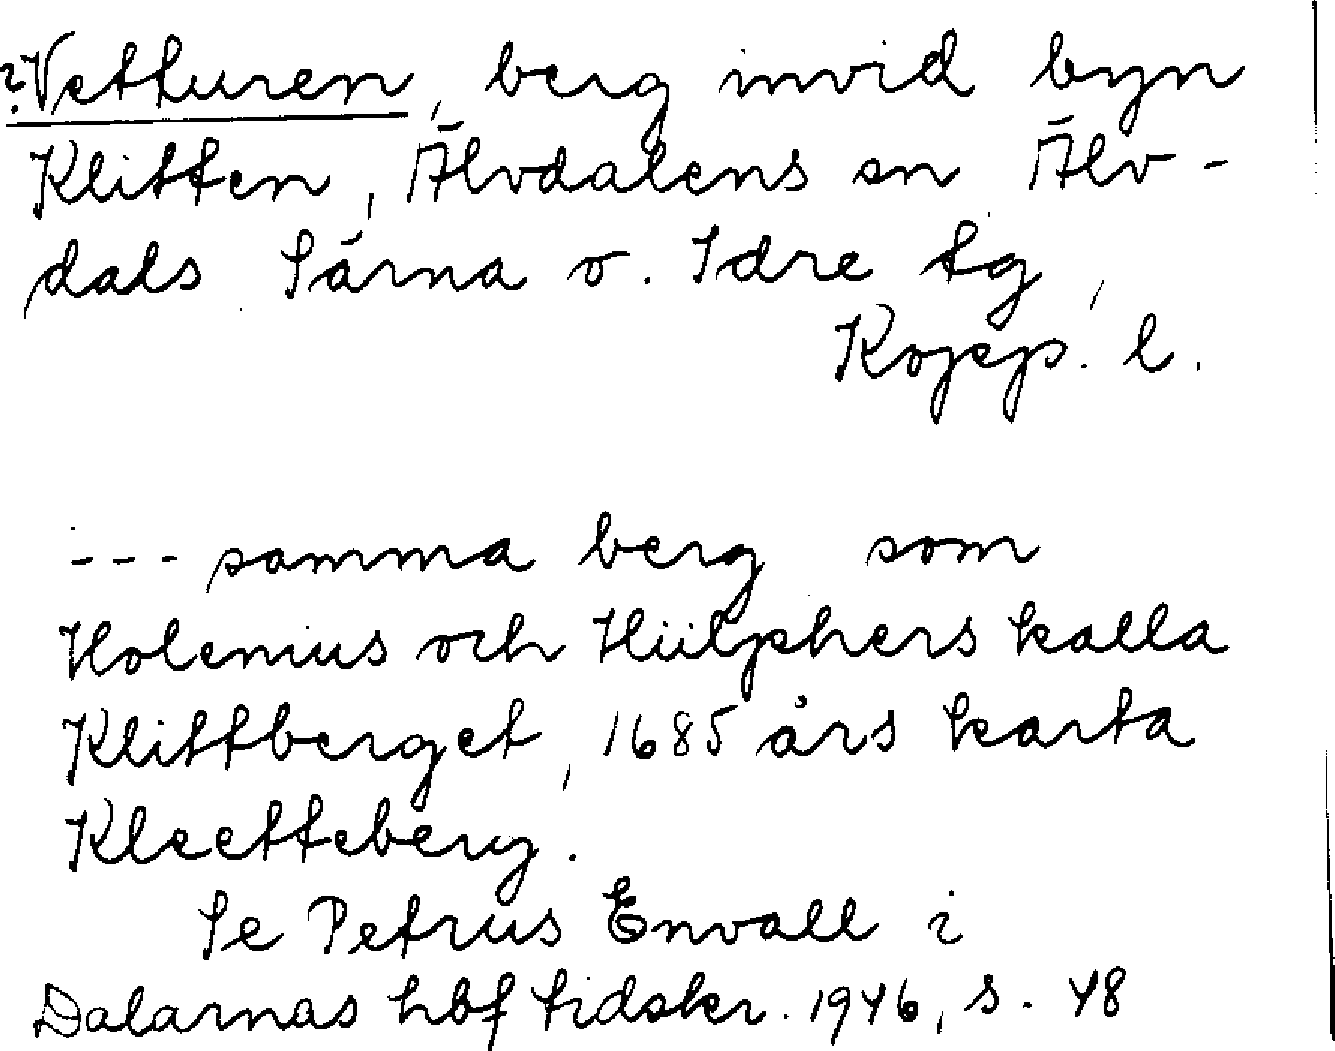 ?Vetturen, berg invid byn
Klitten, Älvdalens sn Älv-
dals Särna o. Idre tg,
Kopp. l.
--- samma berg som
Holenius och Hülphers kalla
Klittberget, 1685 års karta
Kleetteberg.
Se Petrus Envall i
Dalarnas hbf tidskr. 1946, s. 48